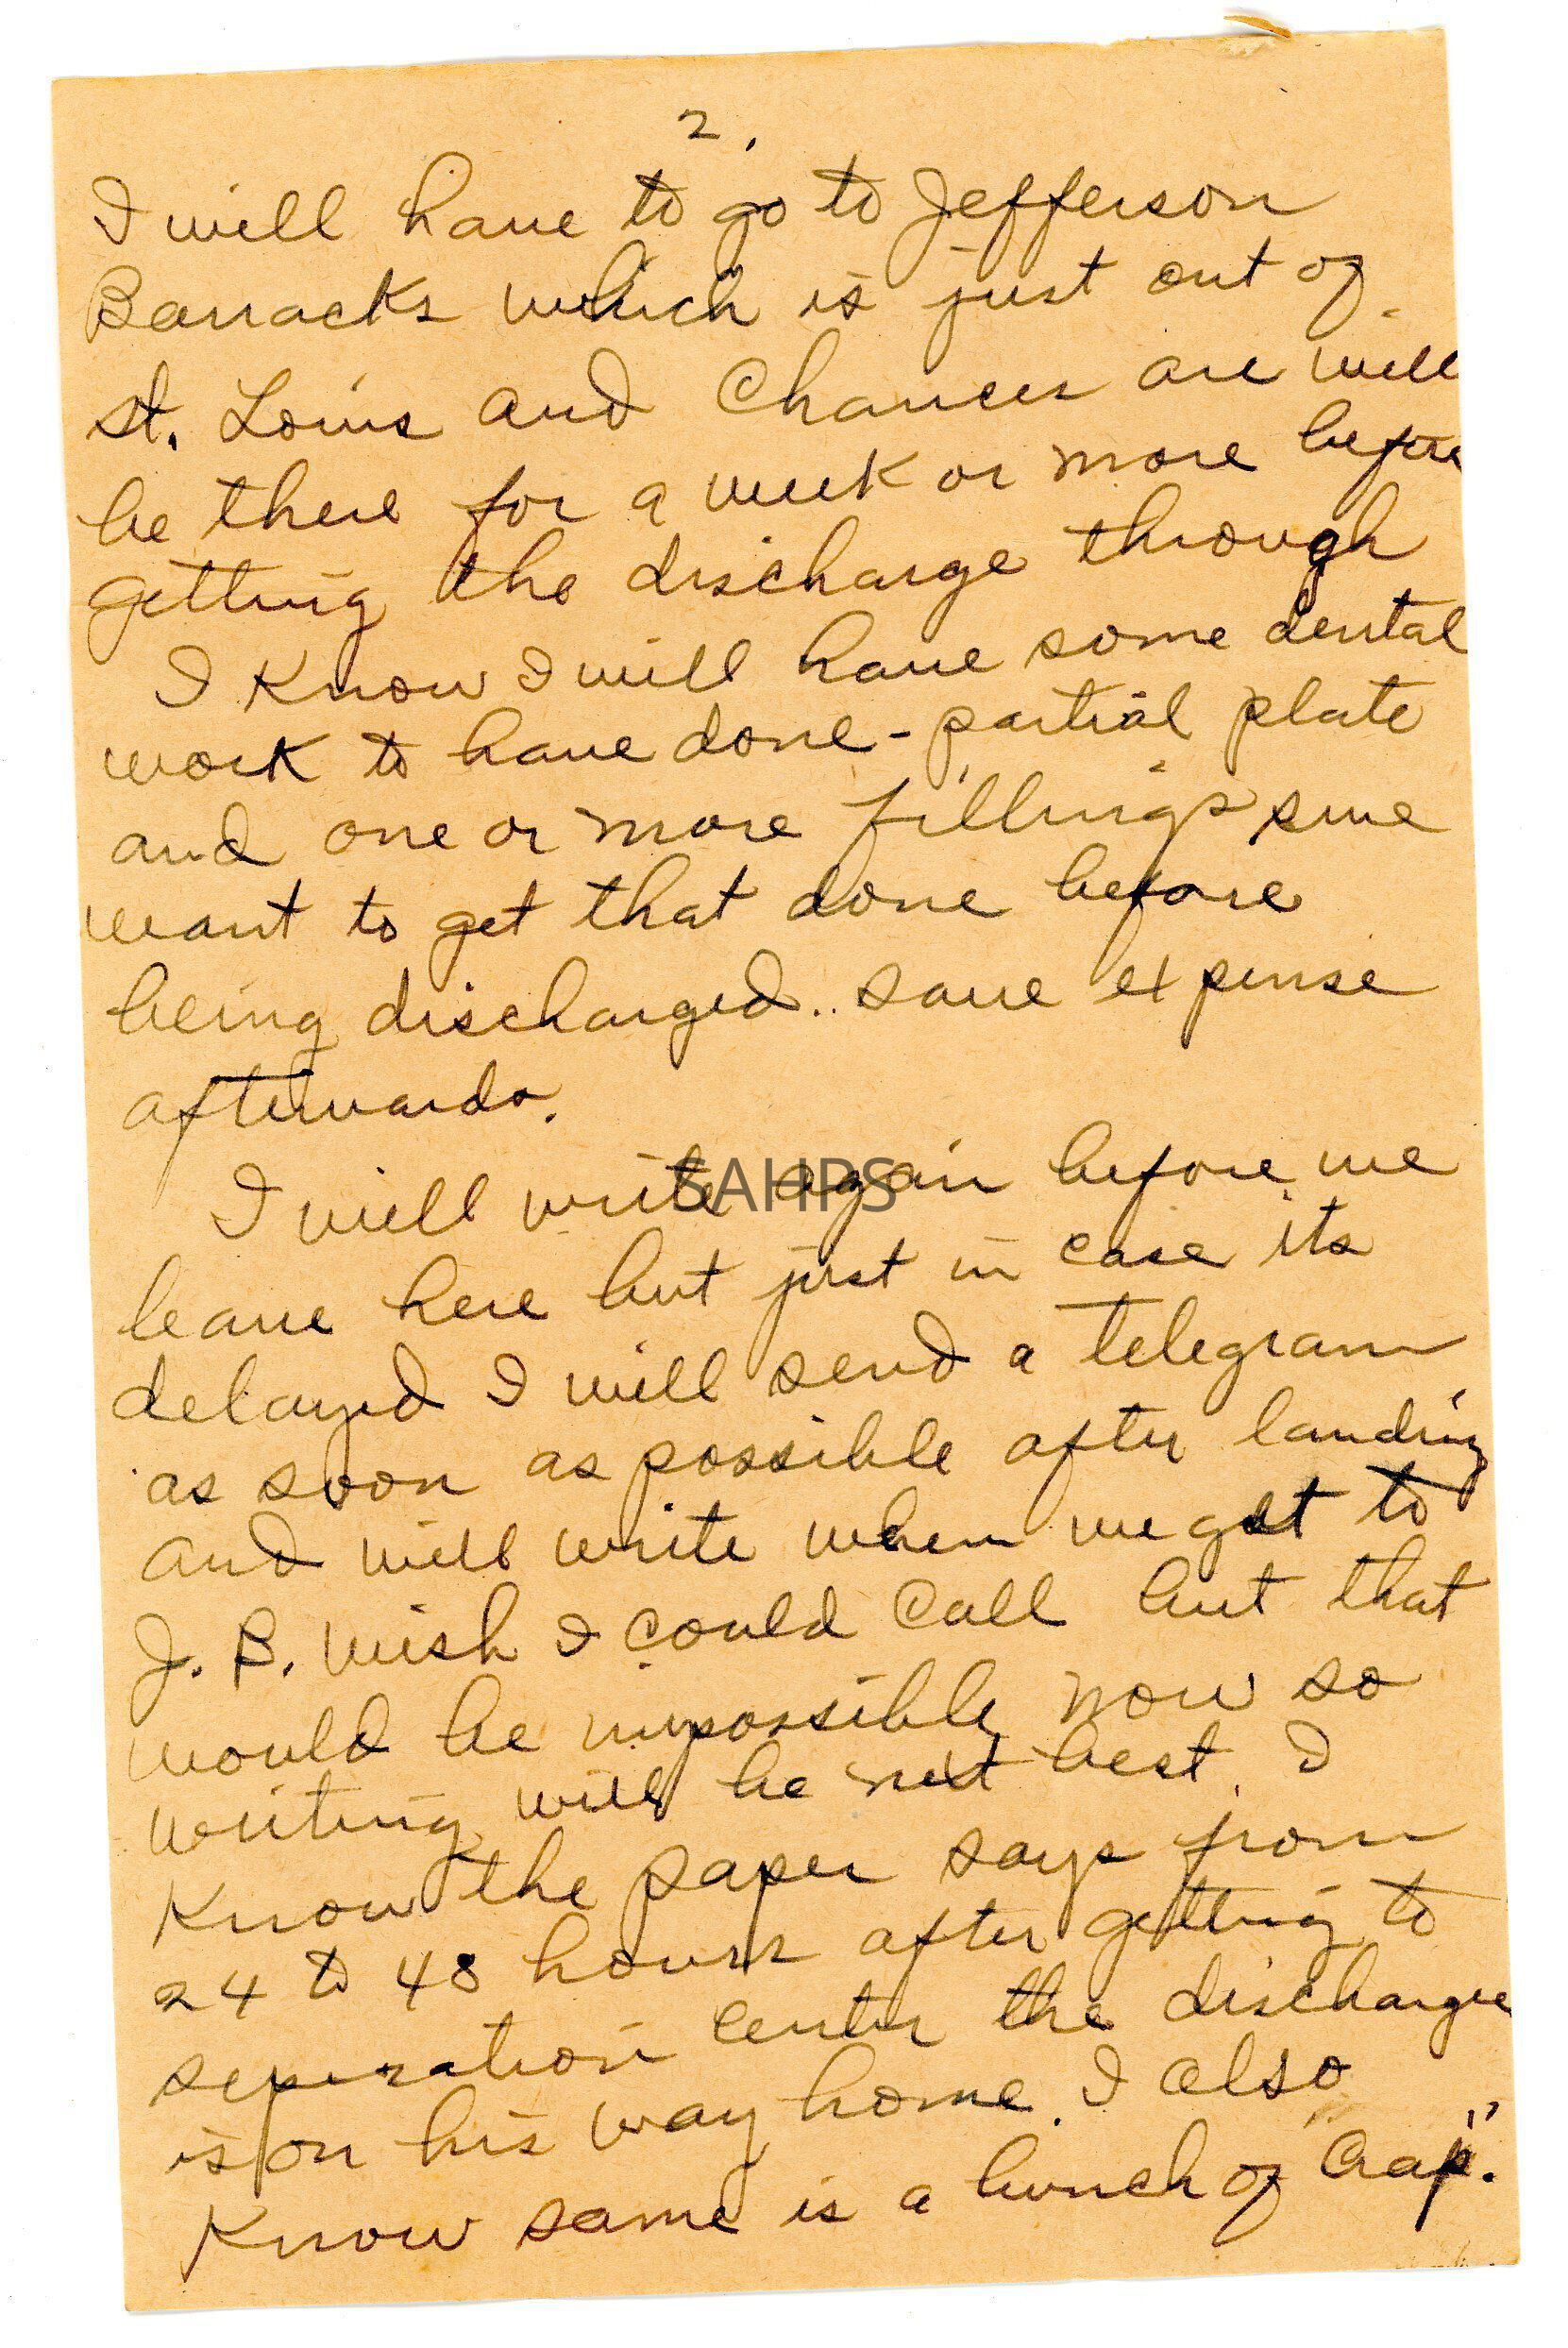 2.
I will have to go to Jefferson
Barracks which is just out of
St. Louis and Chances are will
be there for a week or more before
getting the discharge through
I know I will have some dental
work to have done - partial plate
and one or more fillings sure
want to get that done before
being discharged.. save expense
afterwards.
I will write again before we
SAHPS
leave here but just in case its
delayed I will send a telegram
as soon as possible after landing
and will write when we get to
J. B. Wish I could Call but that
would be impossible now so
writing will be next best. I
Know the paper says from
24 to 48 hours after getting to
separation center the dischargee
is on his way home. I also
Know same is a bunch of "Crap".